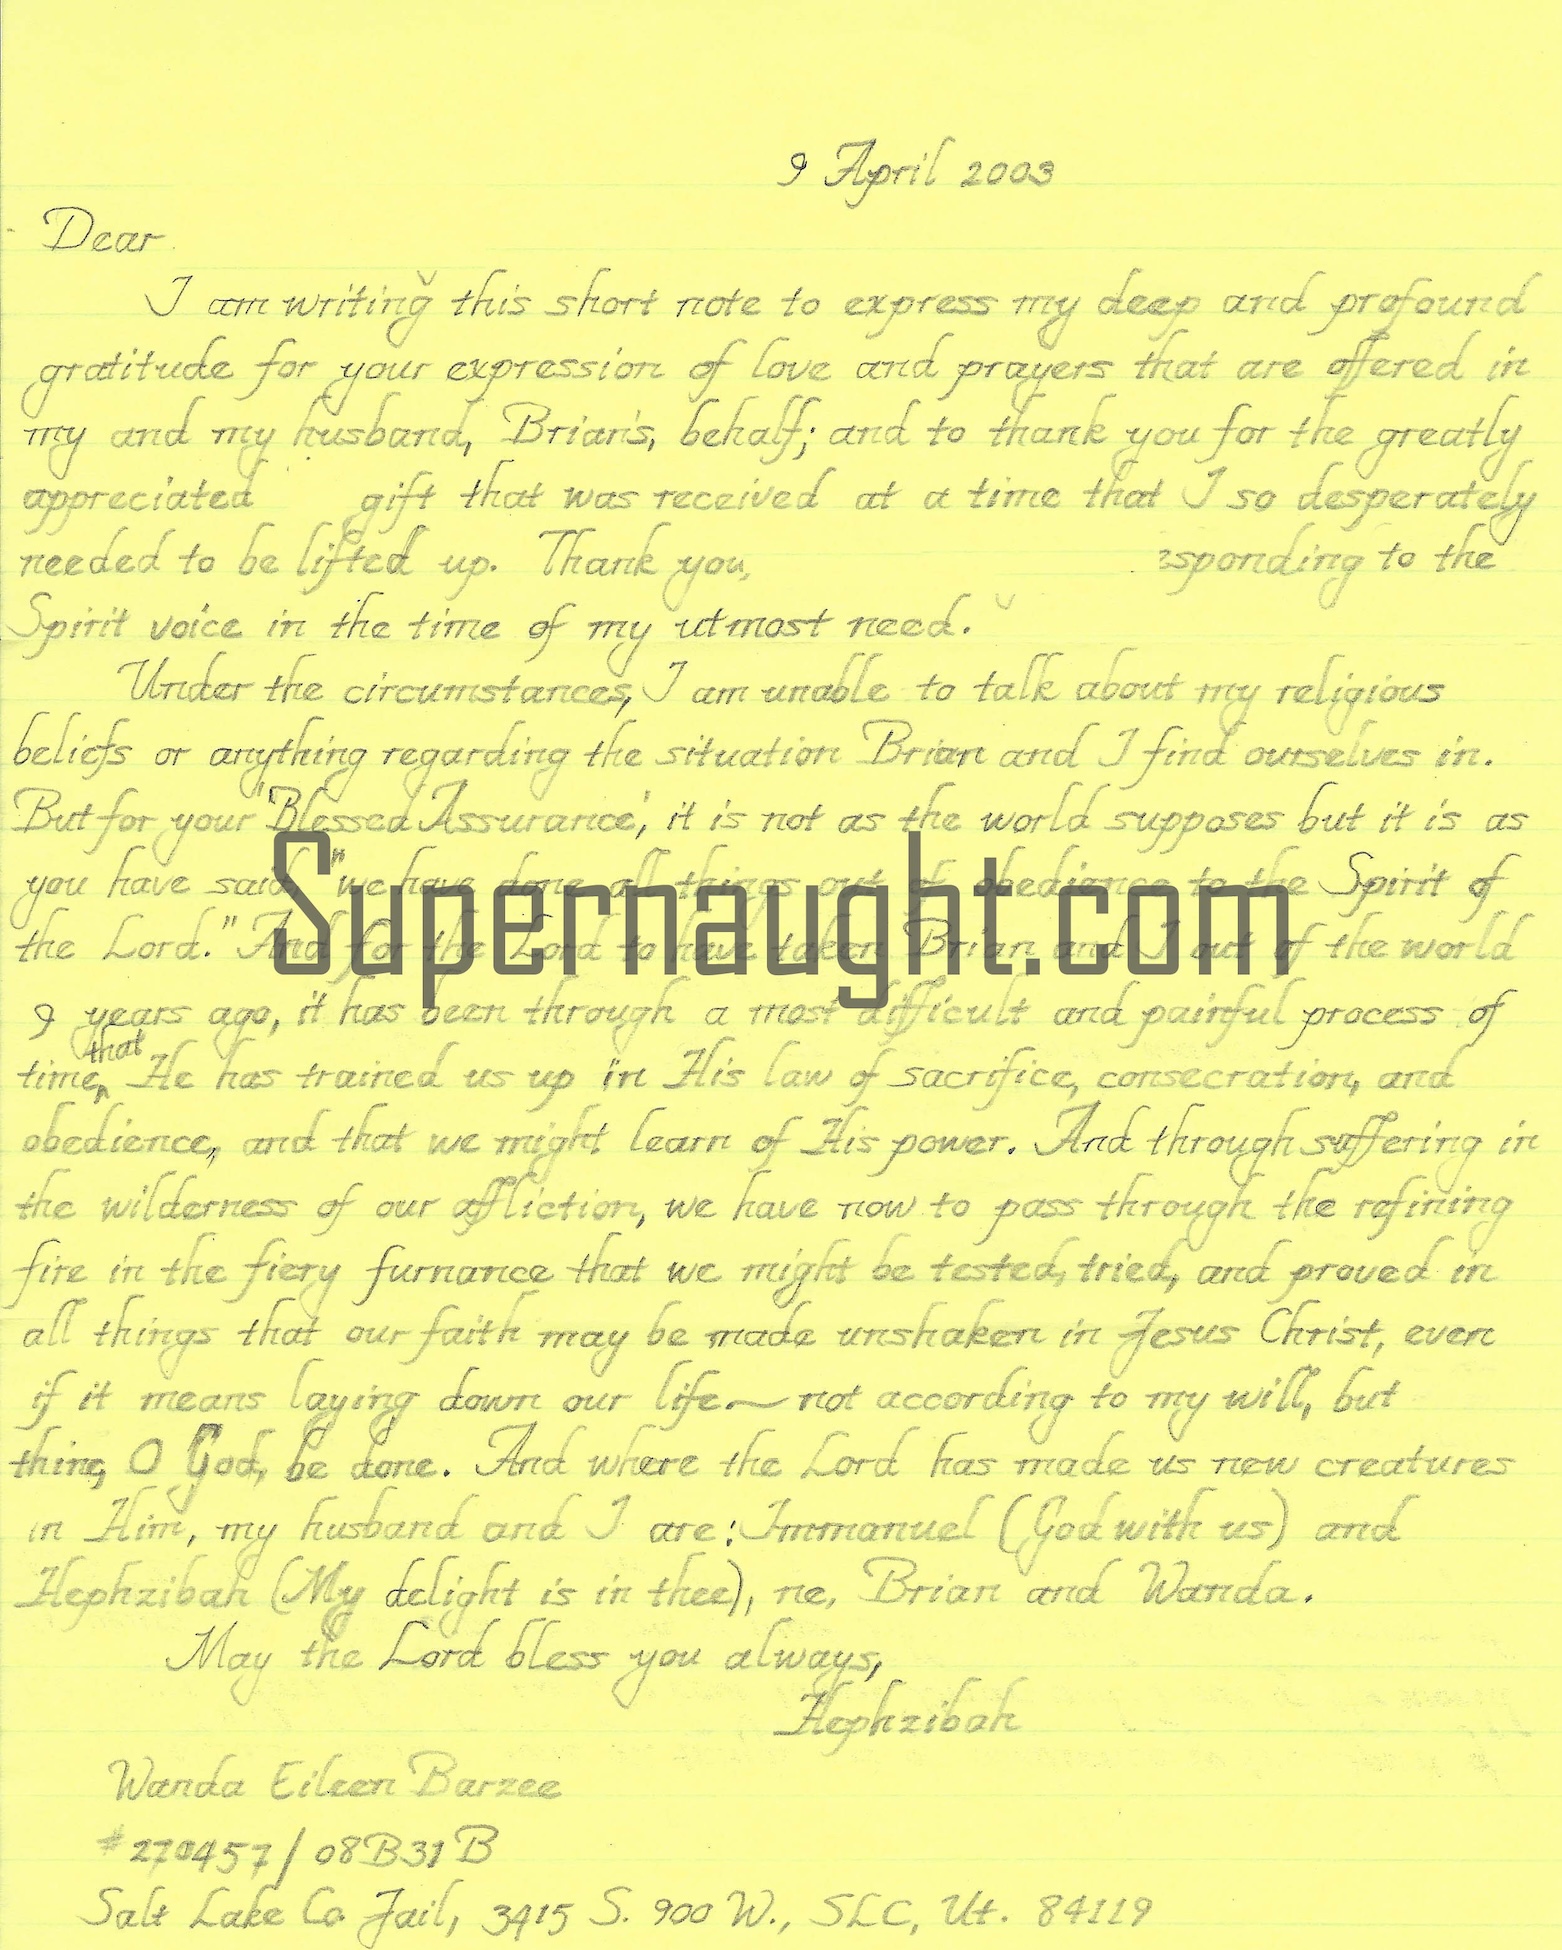 9 April 2003
Dear
I am writing this short note to express my deep and profound
gratitude for your expression of love and prayers that are offered in
my and my husband, Brian's, behalf; and to thank you for the greatly
appreciated gift that was received at a time that I so desperately
needed to be lifted up. Thank you, esponding to the
Spirit voice in the time of my utmost need.
Under the circumstances, I am unable to talk about my religious
beliefs or anything regarding the situation Brian and I find ourselves in.
But for your 'Blessed Assurance', it is not as the world supposes but it is as
you have said "we have done all things out of obedience to the Spirit of
Supernaught.com
the Lord." And for the Lord to have taken Brian and I out of the world
9 years ago, it has been through a most difficult and painful process of
time, that He has trained us up in His law of sacrifice, consecration, and
obedience, and that we might learn of His power. And through suffering in
the wilderness of our affliction, we have now to pass through the refining
fire in the fiery furnance that we might be tested, tried, and proved in
all things that our faith may be made unshaken in Jesus Christ, even
if it means laying down our life~not according to my will, but
thine, O God, be done. And where the Lord has made us new creatures
in Him, my husband and I are: Immanuel (God with us) and
Hephzibah (My delight is in thee), ne, Brian and Wanda.
May the Lord bless you always,
Hephzibah
Wanda Eileen Barzee
#270457/08B31B
Salt Lake Co. Jail, 3415 S. 900 W., SLC, Ut. 84119